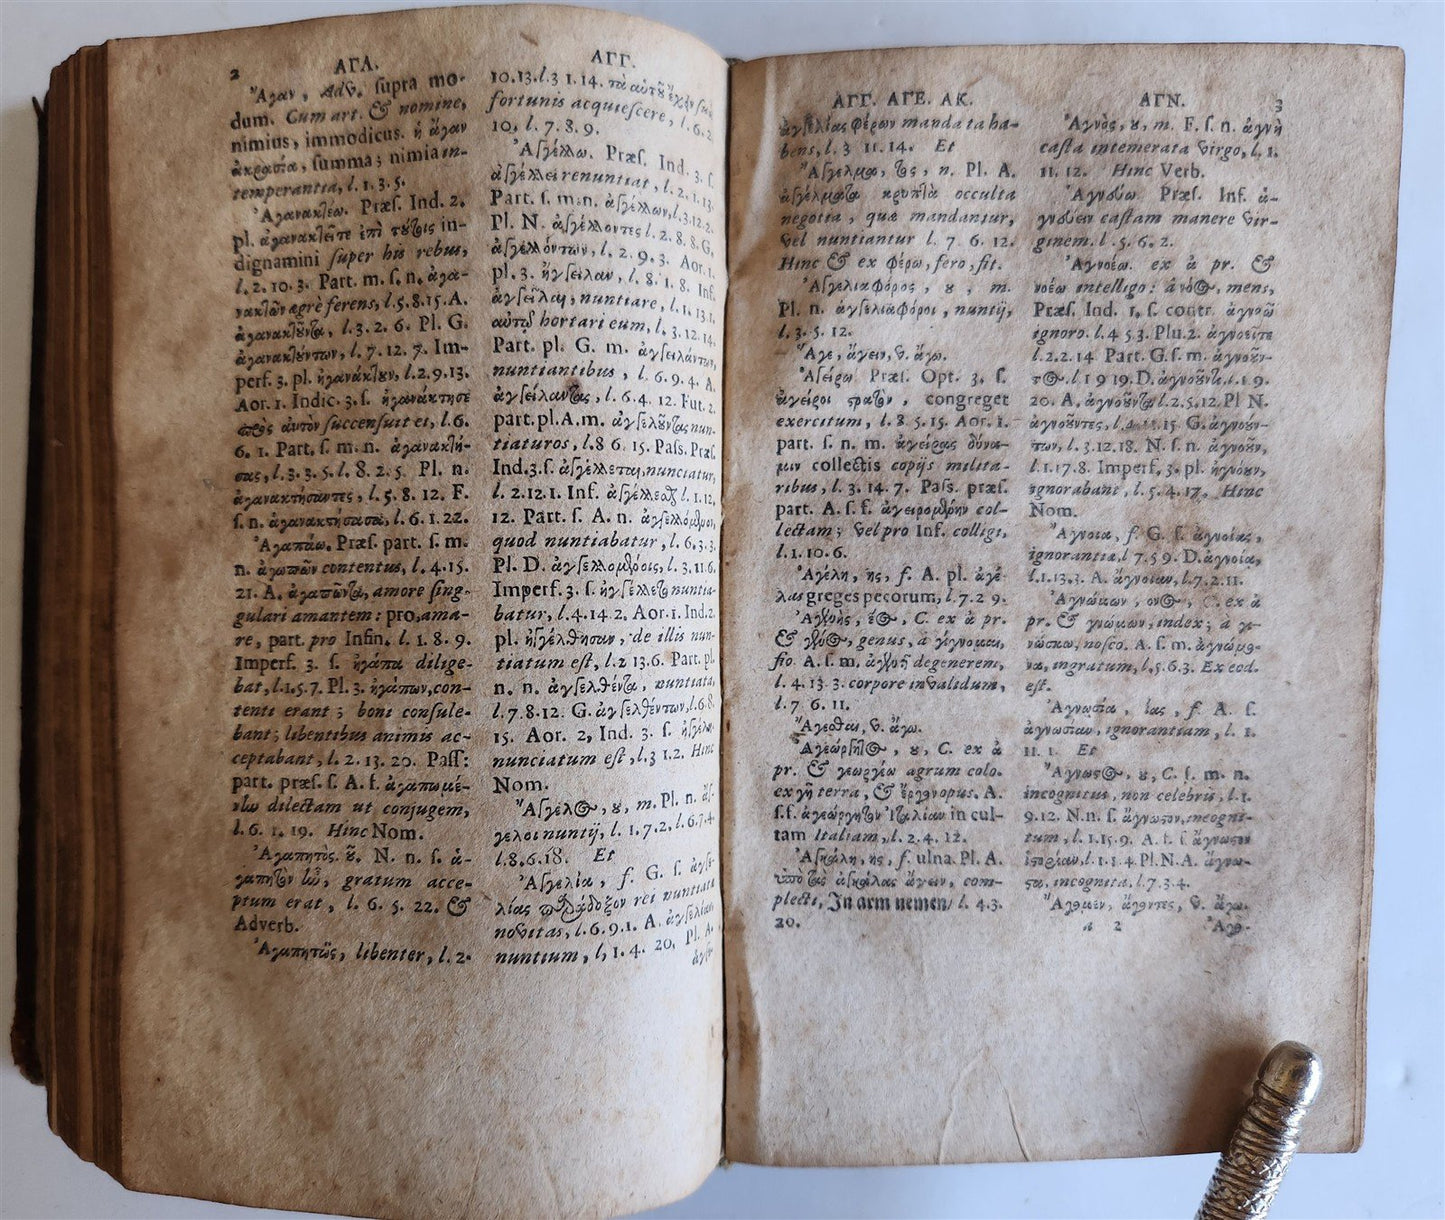 2 ΑΓΑ.
Ἄγαν, Adv. supra mo-
dum. Cum art. & nomine,
nimius, immodicus. ἡ ἄγαν
ἀκρασία, summa; nimia in-
temperantia, l. 1. 3. 5.
Ἀγανακτέω. Præs. Ind. 2.
pl. ἀγανακτεῖτε ἐπὶ τούτοις in-
dignamini super his rebus,
l. 2. 10. 3. Part. m. s. n. ἀγα-
νακτῶν ægrè ferens, l. 5. 8. 15. A.
ἀγανακτοῦντα, l. 3. 2. 6. Pl. G.
ἀγανακτούντων, l. 7. 12. 7. Im-
perf. 3. pl. ἠγανάκτουν, l. 2. 9. 13.
Aor. 1. Indic. 3. s. ἠγανάκτησε
πρὸς αὐτὸν succensuit ei, l. 6.
6. 1. Part. s. m. n. ἀγανακτή-
σας, l. 3. 3. 5. l. 8. 2. 5. Pl. n.
ἀγανακτήσαντες, l. 5. 8. 12. F.
s. n. ἀγανακτήσασα, l. 6. 1. 22.
Ἀγαπάω. Præs. part. s. m.
n. ἀγαπῶν contentus, l. 4. 15.
21. A. ἀγαπῶντα, amore sing-
gulari amantem: pro, ama-
re, part. pro Infin. l. 1. 8. 9.
Imperf. 3. s. ἠγάπα dilige-
bat, l. 1. 5. 7. Pl. 3. ἠγάπων, con-
tenti erant; boni consule-
bant; libentibus animis ac-
ceptabant, l. 2. 13. 20. Pass:
part. præs. s. A. f. ἀγαπωμέ-
νην dilectam ut conjugem,
l. 6. 1. 19. Hinc Nom.
Ἀγαπητὸς. οῦ, N. n. s. ἀ-
γαπητὸν ἦν, gratum acce-
ptum erat, l. 6. 5. 22. &
Adverb.
Ἀγαπητῶς, libenter, l. 2.
ΑΓΓ.
10. 13. l. 3 1. 14. τὰ αὑτοῦ ἔχων
fortunis acquiescere, l. 6. 2.
10. l. 7. 8. 9.
Ἀγγέλλω. Præs. Ind. 3. s.
ἀγγέλλει renuntiat, l. 2. 1. 13.
Part. s. m. n. ἀγγέλλων, l. 3. 12. 2.
Pl. N. ἀγγέλλοντες l. 2. 8. 8. G.
ἀγγελλόντων, l. 2. 9. 3. Aor. 1.
pl. 3. ἤγγειλαν, l. 8. 1. 8. Inf.
ἀγγεῖλαι, nuntiare, l. 1. 13. 1.
αὐτῷ hortari eum, l. 3. 12. 14.
Part. pl. G. m. ἀγγειλάντων,
nuntiantibus, l. 6. 9. 4. A.
ἀγγείλαντας, l. 6. 4. 12. Fut. 2.
part. pl. A. m. ἀγγελοῦντας nun-
tiaturos, l. 8 6. 15. Pass. Præs.
Ind. 3. s. ἀγγέλλεται, nunciatur,
l. 2. 12. 1. Inf. ἀγγέλλεσθαι l. 1. 12.
12. Part. s. A. n. ἀγγελλόμενον,
quod nuntiabatur, l. 6. 3. 3.
Pl. D. ἀγγελλομένοις, l. 3. 11. 6.
Imperf. 3. s. ἠγγέλλετο nuntia-
batur, l. 4. 14 2. Aor. 1. Ind. 2.
pl. ἠγγέλθησαν, de illis nun-
tiatum est, l. 2 13. 6. Part. pl.
n. n. ἀγγελθέντα, nuntiata,
l. 7. 8. 12. G. ἀγγελθέντων, l. 6. 8.
15. Aor. 2, Ind. 3. s. ἠγγέλη,
nunciatum est, l. 3 1. 2. Hinc
Nom.
Ἄγγελος, ου, m. Pl. n. ἄγ-
γελοι nuntij, l. 1. 7. 2. l. 6. 7. 4.
l. 8. 6. 18. Et
Ἀγγελία, f. G. s. ἀγγε-
λίας παράδοξον rei nuntiatæ
novitas, l. 6. 9. 1. A. ἀγγελίαν
nuntium, l. 1. 4. 20. Pl. A.
ΑΓΓ. ΑΓΕ. ΑΚ.
ἀγγελίας φέρων mandata ha-
bens, l. 3 11. 14. Et
Ἄγγελμα, τος, n. Pl. A.
ἀγγέλματα κρυπτὰ occulta
negotia, quæ mandantur,
vel nuntiantur l. 7. 6. 12.
Hinc & ex φέρω, fero, fit.
Ἀγγελιαφόρος, ου, m.
Pl. n. ἀγγελιαφόροι, nuntij,
l. 3. 5. 12.
Ἄγε, ἄγειν, v. ἄγω.
Ἀγείρω Præs. Opt. 3. s.
ἀγείροι στρατὸν, congreget
exercitum, l. 8. 5. 15. Aor. 1.
part. s. n. m. ἀγείρας δύνα-
μιν collectis copijs milita-
ribus, l. 3. 14. 7. Pass. præs.
part. A. s. f. ἀγειρομένην col-
lectam; vel pro Inf. colligi,
l. 1. 10. 6.
Ἀγέλη, ης, f. A. pl. ἀγέ-
λας greges pecorum, l. 7. 2 9.
Ἀγενὴς, έος, C. ex ἀ pr.
& γένος, genus, à γίγνομαι,
fio. A. s. m. ἀγενῆ degenerem,
l. 4. 13 3. corpore invalidum,
l. 7 6. 11.
Ἄγεσθαι, v. ἄγω.
Ἀγεώργητος, ου, C. ex ἀ
pr. & γεωργέω agrum colo.
ex γῆ terra, & ἔργον opus. A.
s. f. ἀγεώργητον Ἰταλίαν in cul-
tam Italiam, l. 2. 4. 12.
Ἀγκάλη, ης, f. ulna. Pl. A.
ὑπὸ τὰς ἀγκάλας ἄγειν, com-
plecti, In arm nemen/ l. 4. 3.
20.
ΑΓΝ. 3
Ἁγνὸς, οῦ, m. F. s. n. ἁγνὴ
casta intemerata virgo, l. 1.
11. 12. Hinc Verb.
Ἁγνεύω Præs. Inf. ἁ-
γνεύειν castam manere vir-
ginem. l. 5. 6. 2.
Ἀγνοέω. ex ἀ pr. &
νοέω intelligo: à νόος, mens,
Præs. Ind. 1. s. contr. ἀγνοῶ
ignoro. l. 4 5 3. Plu. 2. ἀγνοεῖτε
l. 2. 2. 14 Part. G. s. m. ἀγνοοῦν-
τος. l. 1 9 19. D. ἀγνοοῦντι. l. 1. 9.
20. A. ἀγνοοῦντα l. 2. 5. 12. Pl N.
ἀγνοοῦντες, l. 4. 11. 15 G. ἀγνοούν-
των, l. 3. 12. 18. N. s. n. ἀγνοοῦν,
l. 1. 17. 8. Imperf. 3. pl. ἠγνόουν,
ignorabant, l. 5. 4. 17. Hinc
Nom.
Ἄγνοια, f. G. s. ἀγνοίας,
ignorantia, l 7. 5 9. D. ἀγνοίᾳ,
l. 1. 13. 3. A. ἄγνοιαν, l. 7. 2. 11.
Ἀγνώμων, ονος, C. ex ἀ
pr. & γνώμων, index; à γι-
νώσκω, nosco. A. s. m. ἀγνώμο-
να, ingratum, l. 5. 6. 3. Ex eod.
est.
Ἀγνωσία, ίας, f. A. s.
ἀγνωσίαν, ignorantiam, l. 1.
11. 1. Et
Ἄγνωστος, ου, C. s. m. n.
incognitus, non celebris, l. 1.
9. 12. N. n. s. ἄγνωστον, incogni-
tum, l. 1. 15. 9. A. s. f. ἄγνωστον
ἱστορίαν, l. 1. 1. 4. Pl. N. A. ἄγνω-
στα, incognita. l. 7. 3. 4.
Ἄγομεν, ἄγοντες, v. ἄγω.
A 2 Ἀγο-